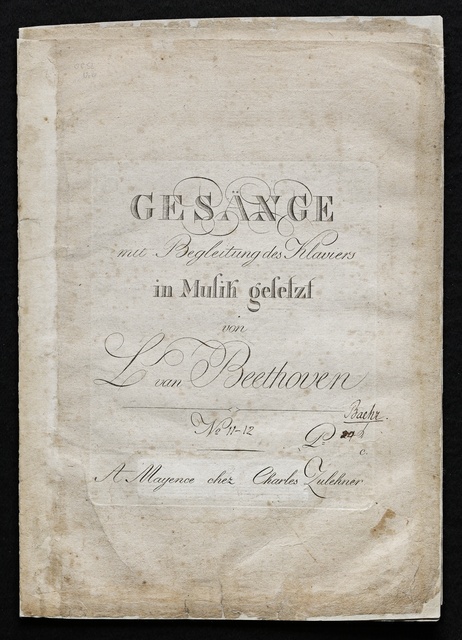 GESÄNGE
mit Begleitung des Klaviers
in Musik gesetzt
von
L. van Beethoven
Baehr.
No 11-12
Pr
c.
A Mayence chez Charles Zulehner